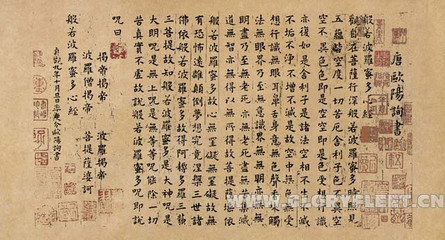 唐歐陽詢書
般若波羅蜜多心經
觀自在菩薩行深般若波羅蜜多時照見
五蘊皆空度一切苦厄舍利子色不異空
空不異色色即是空空即是色受想行識
亦復如是舍利子是諸法空相不生不滅
不垢不淨不增不減是故空中無色無受
想行識無眼耳鼻舌身意無色聲香味觸
法無眼界乃至無意識界無無明亦無無
明盡乃至無老死亦無老死盡無苦集滅
道無智亦無得以無所得故菩提薩埵依
般若波羅蜜多故心無罣礙無罣礙故無
有恐怖遠離顛倒夢想究竟涅槃三世諸
佛依般若波羅蜜多故得阿耨多羅三藐
三菩提故知般若波羅蜜多是大神呪是
大明呪是無上呪是無等等呪能除一切
苦真實不虛故說般若波羅蜜多呪即說
呪曰
揭帝揭帝 波羅揭帝
波羅僧揭帝 菩提薩婆訶
般若波羅蜜多心經
貞觀九年十月旦日率更令歐陽詢書
WWW.GLORYFLEET.CN